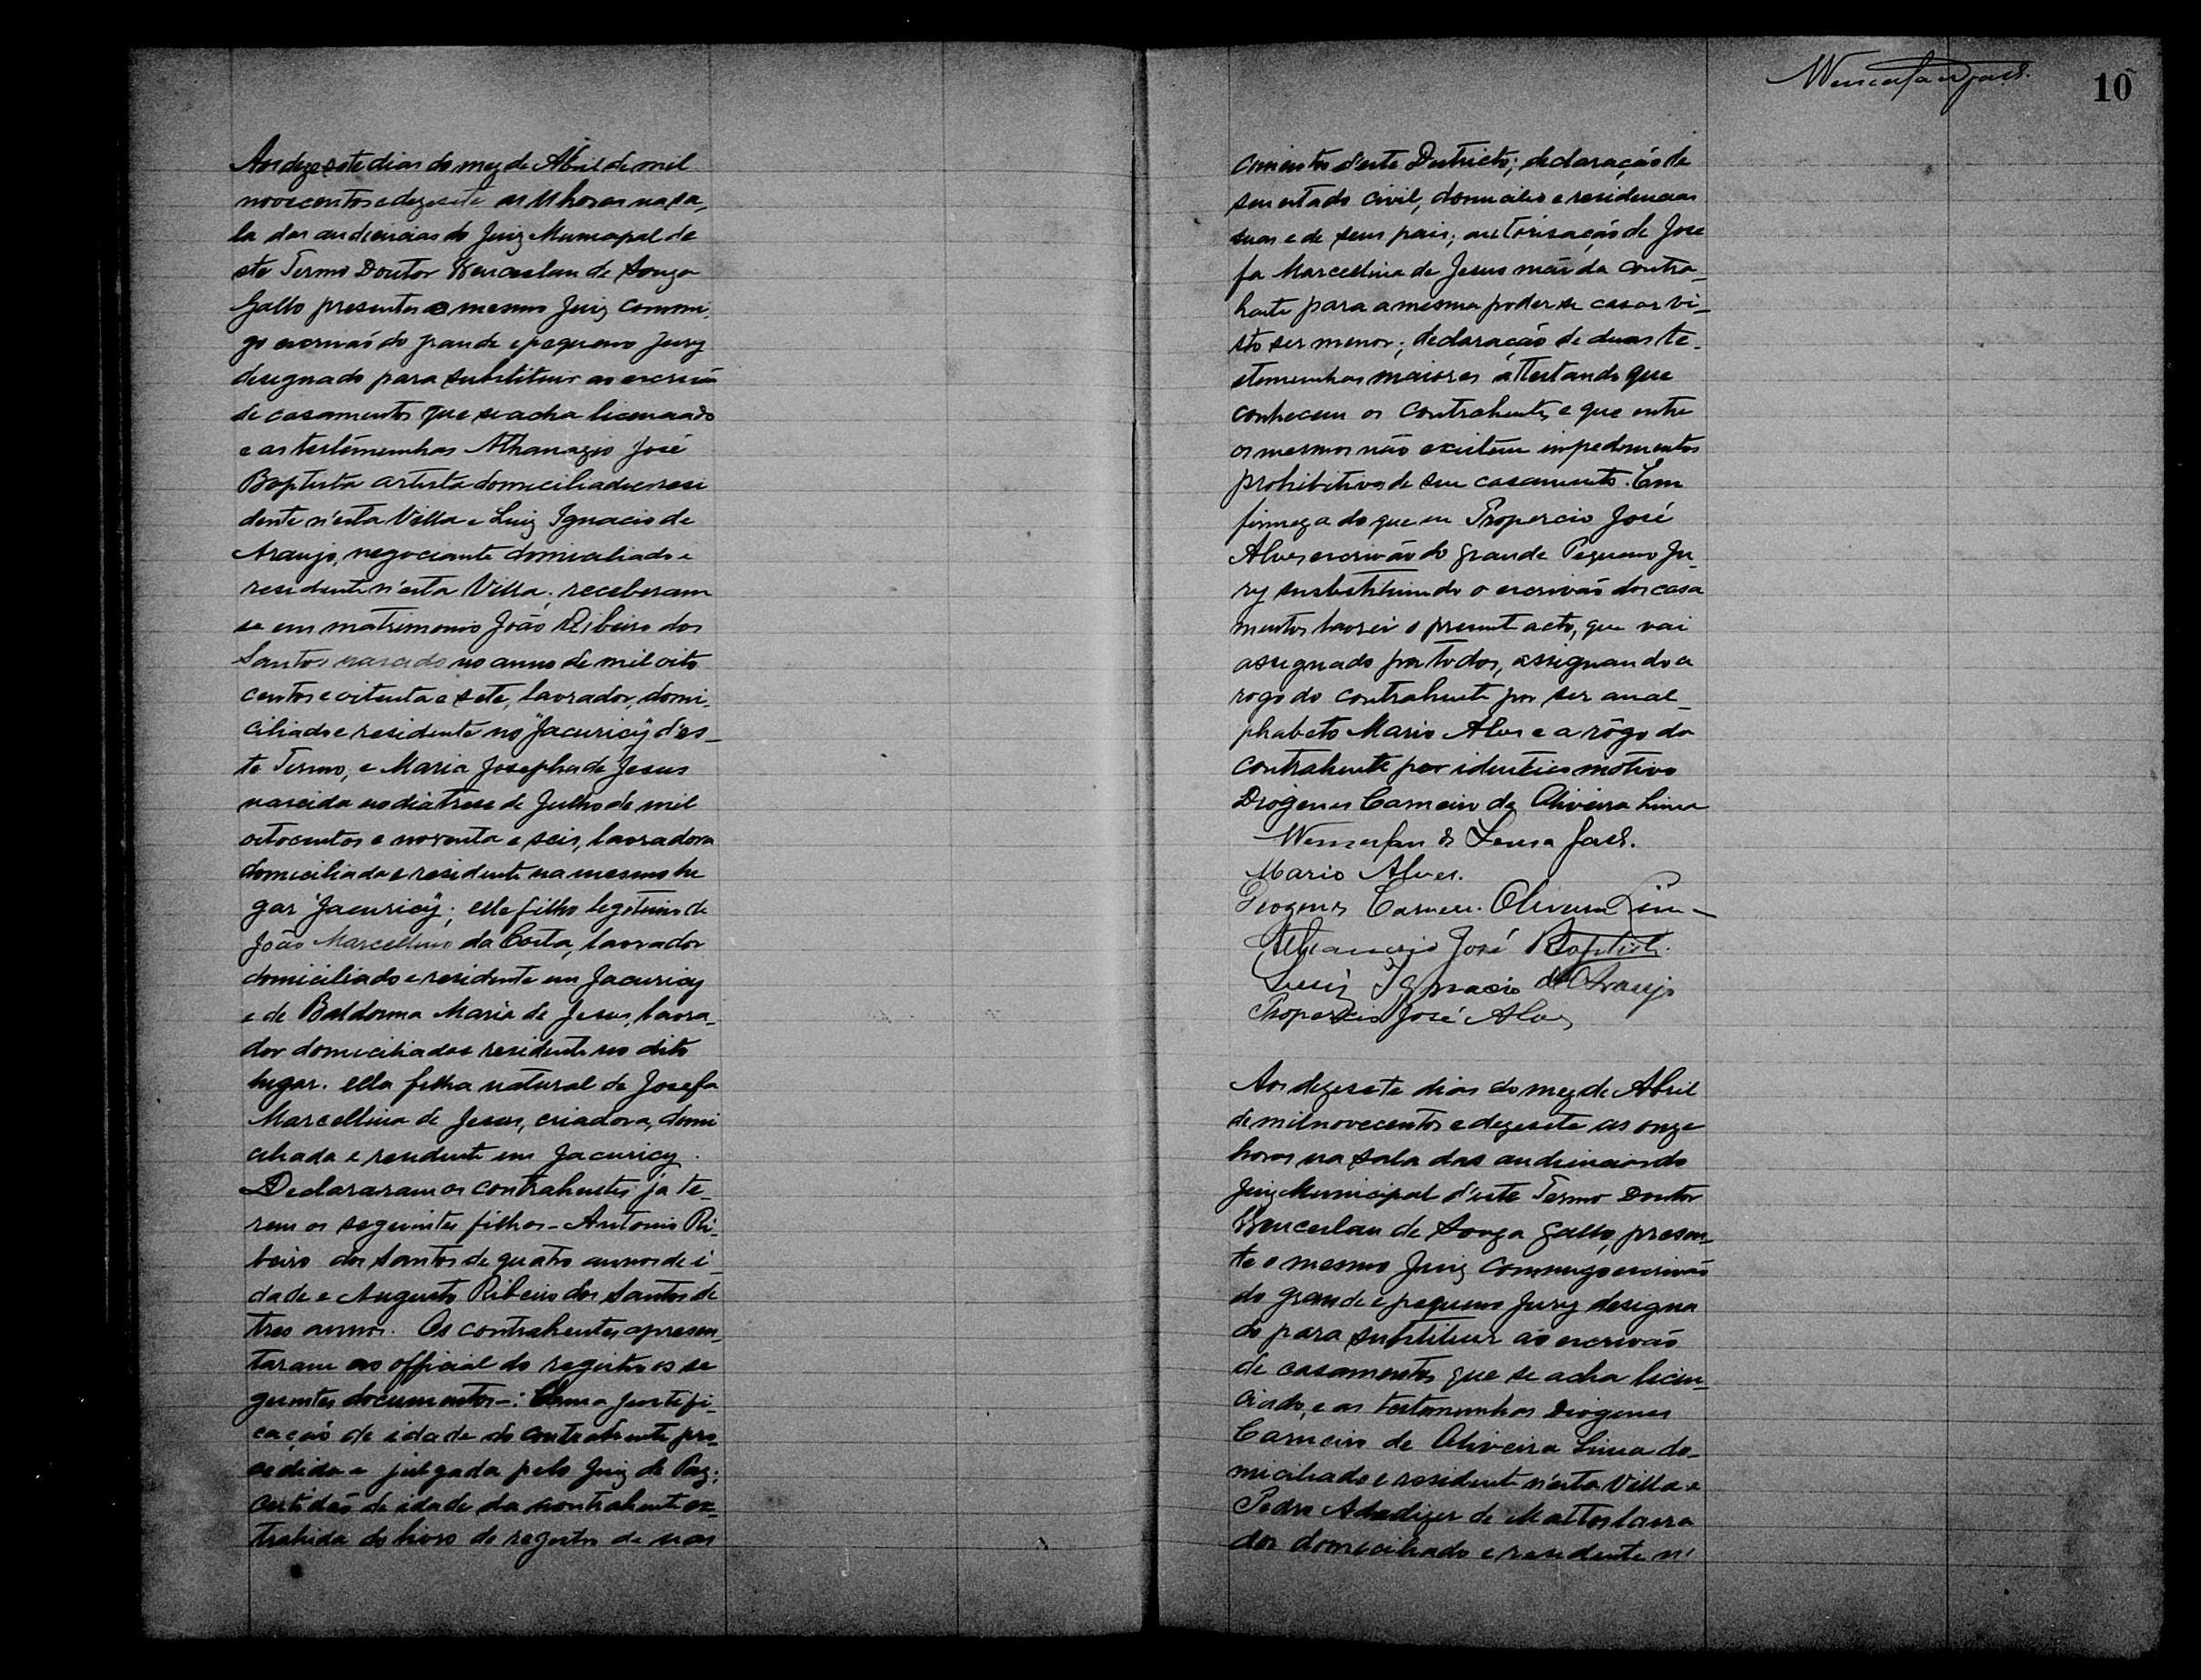 Aos dezesete dias do mez de Abril de mil
novecentos e dezesete as 11 horas na sa-
la das audiencias do Juiz Municipal de
ste Termo Doutor Wenceslau de Souza
Gallo presentes o mesmo Juiz commi-
go escrivão do grande e pequeno Jury
designado para substituir ao escrivão
de casamentos que se acha licenciado
e as testemunhas Athanazio José
Baptista artista domiciliado e resi
dente n'esta Villa e Luiz Ignacio de
Araujo, negociante domiciliado e
residente n'esta Villa, receberam
se em matrimonio João Ribeiro dos
Santos nascido no anno de mil oito
centos e oitenta e sete, lavrador, domi-
ciliado e residente no "Jacuricy" d'es-
te Termo, e Maria Josepha de Jesus
nascida no dia trese de Julho de mil
oitocentos e noventa e seis, lavradora
domiciliada e residente na mesmo lu
gar "Jacuricy"; elle filho legitimo de
João Marcellino da Costa, lavrador
domiciliado e residente em Jacuricy
e de Maria de Jesus, lavra-
dor domiciliada e residente no dito
lugar. ella filha natural de Josefa
Marcellina de Jesus, criadora, domi
ciliada e residente em Jacuricy.
Declararam os contrahentes ja te-
rem os seguintes filhos - Antonio Ri-
beiro dos Santos de quatro annos de i-
dade e Augusto Ribeiro dos Santos de
tres annos. Os contrahentes apresen-
taram ao official do registro os se
guintes documentos -: Uma justifi-
cação de idade do contrahente pro-
cedida e julgada pelo Juiz de Paz;
certidão de idade da contrahente ex-
trahida do livro de registro de nas
10
cimentos d'este Districto; declaração de
seu estado civil, domicilio e residencias
suas e de seus pais; autorisação de Jose
fa Marcellina de Jesus mãi da contra-
hente para a mesma poder se casar vi-
sto ser menor; declaração de duas te-
stemunhas maiores attestando que
conhecem os contrahentes e que entre
os mesmos não existem impedimentos
prohibitivos de seu casamento. Em
firmeza do que eu Propercio José
Alves escrivão do grande Pequeno Ju-
ry substituindo o escrivão dos casa
mentos lavrei o present acto, que vai
assignado por todos, assignando a
rogo do contrahente por ser anal-
phabeto Mario Alves e a rôgo da
contrahente por identico motivo
Diogenes Carneiro de Oliveira Lima
Wenceslau de Souza Gallo.
Mario Alves.
Diogenes Carneiro Oliveira Lima
Athanazio José Baptista.
Luiz Ignacio de Araujo
Propercio José Alves
Aos dezesete dias do mez de Abril
de mil novecentos e dezesete as onze
horas na sala das audiencias do
Juiz Municipal d'este Termo Doutor
Wenceslau de Souza Gallo, presen-
te o mesmo Juiz commigo escrivão
do grande e pequeno Jury designa
do para substituir ao escrivão
de casamentos que se acha licen-
ciado, e as testemunhas Diogenes
Carneiro de Oliveira Lima do-
miciliado e residente n'esta Villa e
Pedro de Mattos lavra
dor domiciliado e residente n'